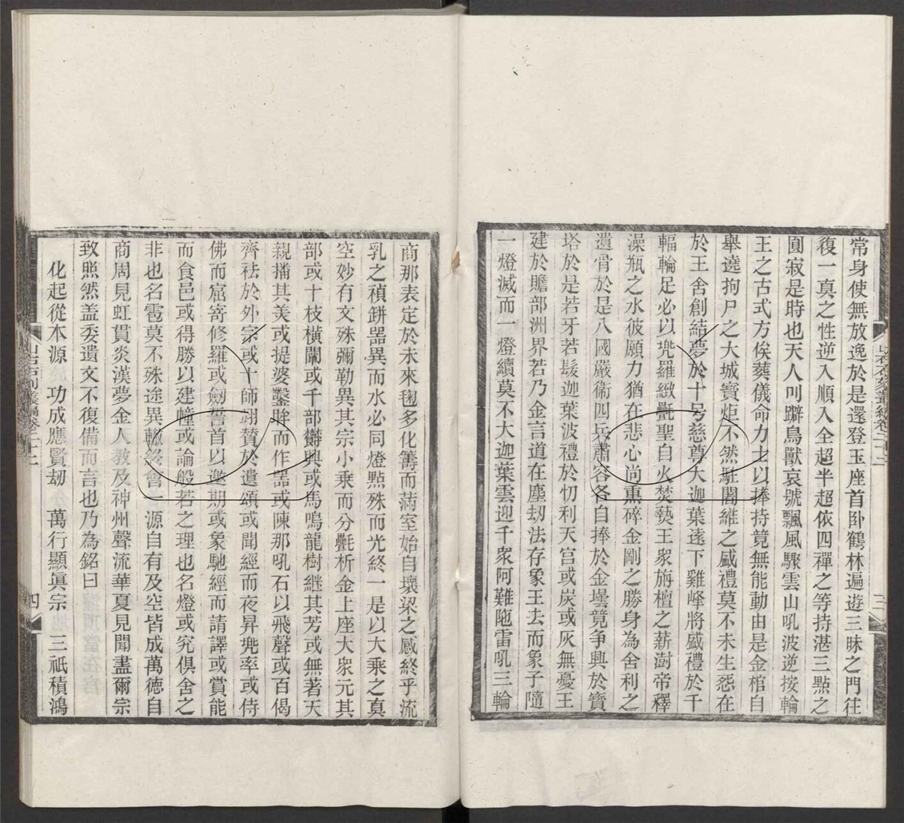 常身使無放逸於是還登玉座首卧鶴林遍遊三昧之門往
復一真之性逆入順入全超半超依四禪之等持湛三㸃之
圓寂是時也天人叫躃鳥獸哀號飄風驟雲山吼波逆按輪
王之古式方俟葬儀命力士以捧持竟無能動由是金棺自
舉遶拘尸之大城寶炬不然駐闍維之盛禮莫不未生怨在
於王舍創結夢於十号慈尊大迦葉遠下雞峰將盛禮於千
輻輪足必以兠羅緻㲲聖自火焚爇王衆旃檀之薪澍帝釋
澡瓶之水彼願力猶在悲心尚熏碎金剛之勝身為舍利之
遺骨於是八國嚴衛四兵肅容各自捧於金壜竟爭興於寶
塔於是若牙若髮迦葉波禮於忉利天宫或炭或灰無憂王
建於贍部洲界若乃金言道在塵刼法存象王去而象子隨
一燈滅而一燈續莫不大迦葉雲迎千衆阿難陁雷吼三輪
商那表定於未來毱多化籌而滿室始自壞梁之感終乎流
乳之禎鉼器異而水必同燈㸃殊而光終一是以大乘之真
空妙有文殊彌勒異其宗小乘而分㲲析金上座大衆元其
部或十枝橫闡或千部欝興或馬鳴龍樹継其芳或無著天
親播其美或提婆鑿眸而作器或陳那吼石以飛聲或百偈
齊袪於外宗或十師翊贊於遺頌或聞經而夜昇兠率或侍
佛而窟寄修羅或劎誓首以邀期或象馳經而請譯或賞能
而食邑或得勝以建幢或論般若之理也名燈或究俱舍之
非也名雹莫不殊途異轍終會一源自有及空皆成萬德自
商周見虹貫炎漢夢金人教及神州聲流華夏見聞盡爾宗
致照然盖委遺文不復備而言也乃為銘曰
化起從本源 功成應賢劫 萬行顯眞宗 三祇積鴻
四